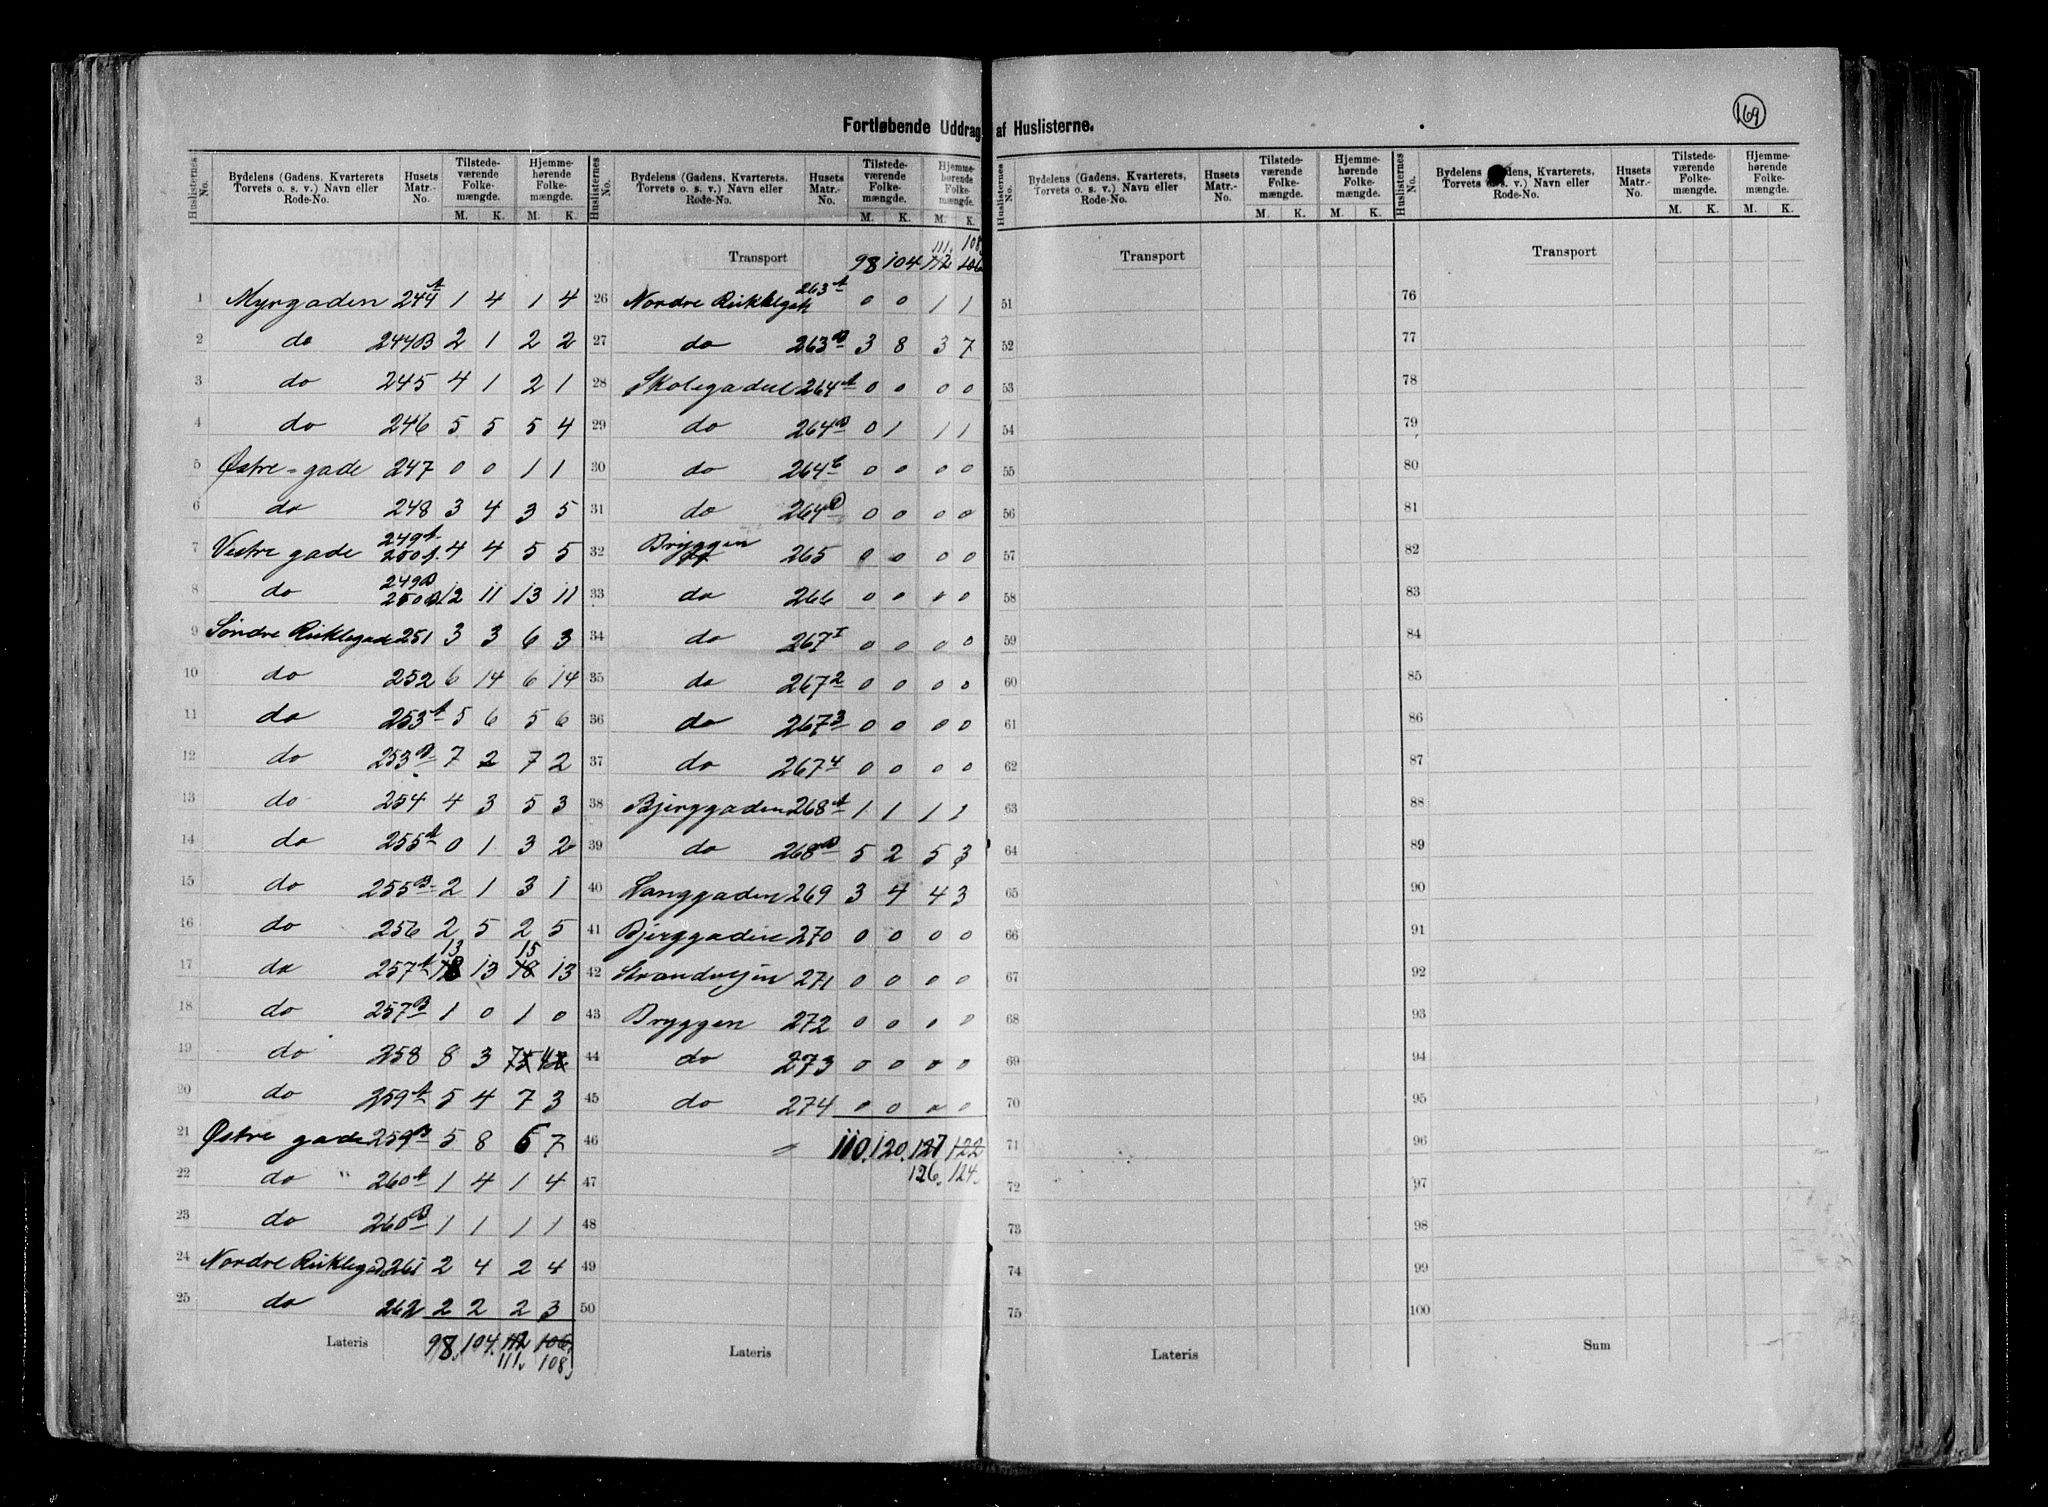 169
Fortløbende Uddrag af Huslisterne.
Huslisternes No. | Bydelens (Gadens, Kvarterets, Torvets o. s. v.) Navn eller Rode-No. | Husets Matr.-No. | Tilstedeværende Folkemængde. M. K. | Hjemmehørende Folkemængde. M. K.
1 Myrgaden 244A 1 4 1 4
2 do 244B 2 1 2 2
3 do 245 4 1 2 1
4 do 246 5 5 5 4
5 Østre-gade 247 0 0 1 1
6 do 248 3 4 3 5
7 Vestre gade 249A 250A 4 4 5 5
8 do 249B 250B 12 11 13 11
9 Søndre Risklegade 251 3 3 6 3
10 do 252 6 14 6 14
11 do 253A 5 6 5 6
12 do 253B 7 2 7 2
13 do 254 4 3 5 3
14 do 255A 0 1 3 2
15 do 255B 2 1 3 1
16 do 256 2 5 2 5
17 do 257A 18 13 13 18 15 13
18 do 257B 1 0 1 0
19 do 258 8 3
20 do 259A 5 4 7 3
21 Østre gade 259B 5 8 6 7
22 do " 260A 1 4 1 4
23 do 260B 1 1 1 1
24 Nordre 261 2 4 2 4
25 do 262 2 2 2 3
Lateris 98. 104. 112 106.
111. 108.
Huslisternes No. | Bydelens (Gadens, Kvarterets, Torvets o. s. v.) Navn eller Rode-No. | Husets Matr.-No. | Tilstedeværende Folkemængde. M. K. | Hjemmehørende Folkemængde. M. K.
111. 108.
Transport 98 104 112 106
26 Nordre 263A 0 0 1 1
27 do 263B 3 8 3 7
28 Skolegaden 264A 0 0 0 0
29 do 264B 0 1 1 1
30 do 264C 0 0 0 0
31 do 264D 0 0 0 0
32 Bryggen 265 0 0 0 0
33 do 266 0 0 0 0
34 do 267 1 0 0 0 0
35 do 267 2 0 0 0 0
36 do 267 3 0 0 0 0
37 do 267 4 0 0 0 0
38 Bjerggaden 268A 1 1 1 1
39 do 268B 5 2 5 3
40 Langgaden 269 3 4 4 3
41 Bjerggaden 270 0 0 0 0
42 Strandvejen 271 0 0 0 0
43 Bryggen 272 0 0 0 0
44 do 273 0 0 0 0
45 do 274 0 0 0 0
46 110. 120. 127 122
47 126. 124.
48
49
50
Lateris
Huslisternes No. | Bydelens (Gadens, Kvarterets, Torvets o. s. v.) Navn eller Rode-No. | Husets Matr.-No. | Tilstedeværende Folkemængde. M. K. | Hjemmehørende Folkemængde. M. K.
Transport
51
52
53
54
55
56
57
58
59
60
61
62
63
64
65
66
67
68
69
70
71
72
73
74
75
Lateris
Huslisternes No. | Bydelens (Gadens, Kvarterets, Torvets o. s. v.) Navn eller Rode-No. | Husets Matr.-No. | Tilstedeværende Folkemængde. M. K. | Hjemmehørende Folkemængde. M. K.
Transport
76
77
78
79
80
81
82
83
84
85
86
87
88
89
90
91
92
93
94
95
96
97
98
99
100
Sum